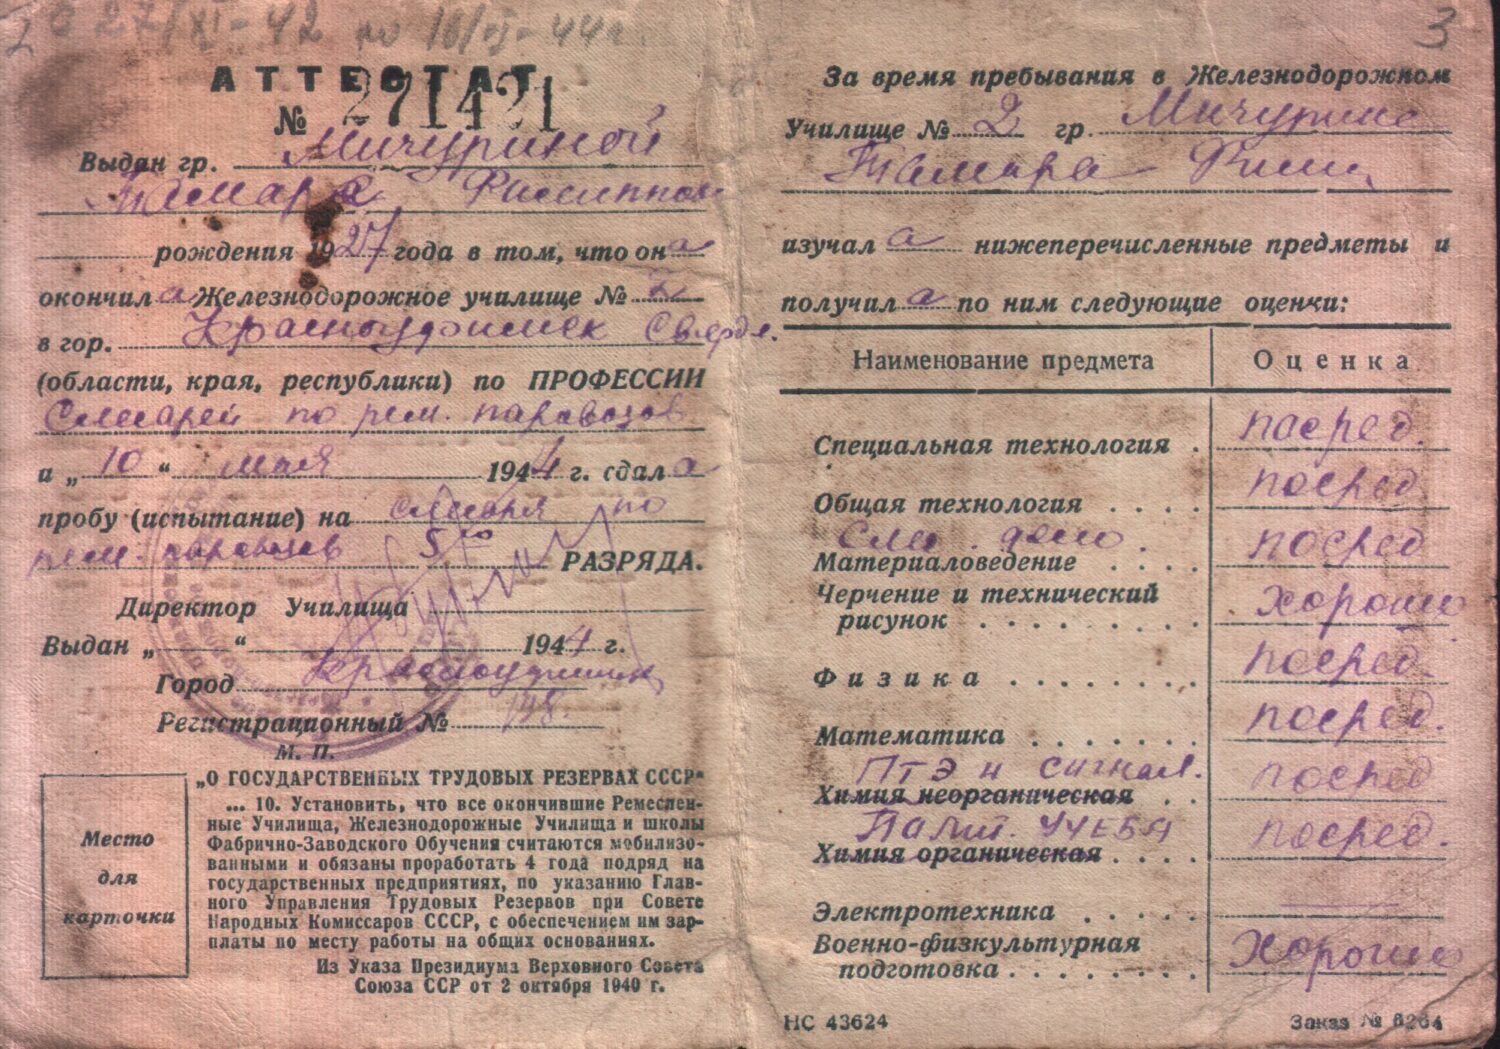 27/XI-42 по 16/VI-44г.
АТТЕСТАТ
№ 271421
Выдан гр. Мичуриной
Тамара Филиппов
рождения 1927 года в том, что она
окончила Железнодорожное училище № 2
в гор. Красноуфимск Свердл.
(области, края, республики) по ПРОФЕССИИ
Слесарей по рем. паровозов
и „10“ мая 1944 г. сдала
пробу (испытание) на слесаря по
рем. паровозов 5го РАЗРЯДА.
Директор Училища
Выдан „ “ 1944 г.
Город Красноуфимск
Регистрационный №
М. П.
Место
для
карточки
„О ГОСУДАРСТВЕННЫХ ТРУДОВЫХ РЕЗЕРВАХ СССР“
... 10. Установить, что все окончившие Ремеслен-
ные Училища, Железнодорожные Училища и школы
Фабрично-Заводского Обучения считаются мобилизо-
ванными и обязаны проработать 4 года подряд на
государственных предприятиях, по указанию Глав-
ного Управления Трудовых Резервов при Совете
Народных Комиссаров СССР, с обеспечением им зар-
платы по месту работы на общих основаниях.
Из Указа Президиума Верховного Совета
Союза ССР от 2 октября 1940 г.
3
За время пребывания в Железнодорожном
Училище № 2 гр. Мичурина
Тамара Филип
изучала нижеперечисленные предметы и
получила по ним следующие оценки:
Наименование предмета Оценка
Специальная технология . посред.
Общая технология . . . . посред
Слес. дело.
Материаловедение . . . . посред
Черчение и технический
рисунок . . . . . . . . хорошо
Физика . . . . . . . посред.
Математика . . . . . . . посред.
ПТЭ и сигнал.
Химия неорганическая . . посред
Полит. учеба
Химия органическая . . . . посред.
Электротехника . . . . —
Военно-физкультурная
подготовка . . . . . . . . хорошо
НС 43624
Заказ № 6264